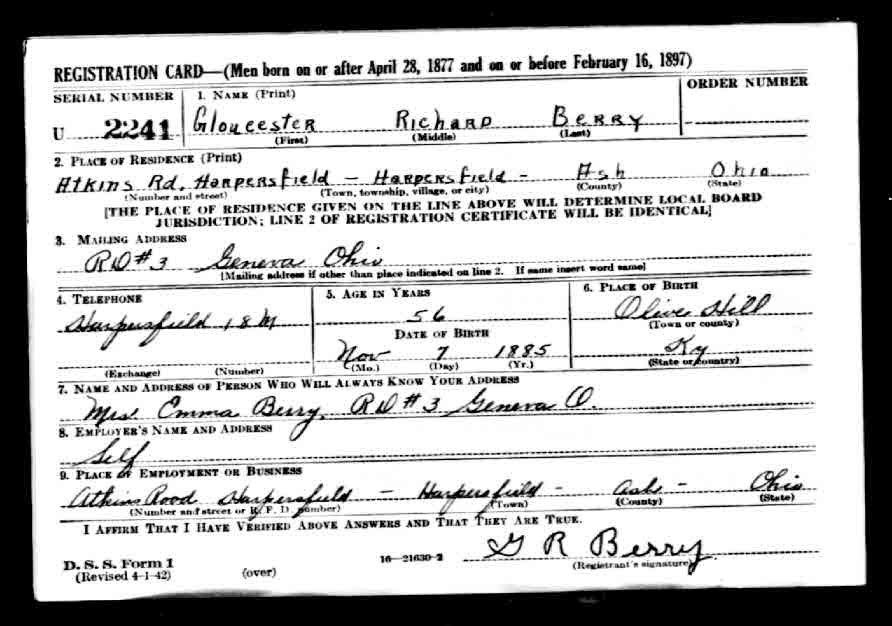 REGISTRATION CARD—(Men born on or after April 28, 1877 and on or before February 16, 1897)
SERIAL NUMBER 1. NAME (Print) ORDER NUMBER
U 2241 Gloucester Richard Berry
(First) (Middle) (Last)
2. PLACE OF RESIDENCE (Print)
Atkins Rd. Harpersfield — Harpersfield - Ash Ohio
(Number and street) (Town, township, village, or city) (County) (State)
[THE PLACE OF RESIDENCE GIVEN ON THE LINE ABOVE WILL DETERMINE LOCAL BOARD
JURISDICTION; LINE 2 OF REGISTRATION CERTIFICATE WILL BE IDENTICAL]
3. MAILING ADDRESS
RD #3 Geneva Ohio
[Mailing address if other than place indicated on line 2. If same insert word same]
4. TELEPHONE 5. AGE IN YEARS 6. PLACE OF BIRTH
Harpersfield 18 M 56 Olive Hill
DATE OF BIRTH (Town or county)
Nov 7 1885 Ky
(Exchange) (Number) (Mo.) (Day) (Yr.) (State or country)
7. NAME AND ADDRESS OF PERSON WHO WILL ALWAYS KNOW YOUR ADDRESS
Mrs Emma Berry, RD #3 Geneva O.
8. EMPLOYER'S NAME AND ADDRESS
Self
9. PLACE OF EMPLOYMENT OR BUSINESS
Atkins Rood Harpersfield — Harpersfield - Ash - Ohio
(Number and street or R. F. D. number) (Town) (County) (State)
I AFFIRM THAT I HAVE VERIFIED ABOVE ANSWERS AND THAT THEY ARE TRUE.
G R Berry
D. S. S. Form 1 16—21630-2 (Registrant's signature)
(Revised 4-1-42) (over)